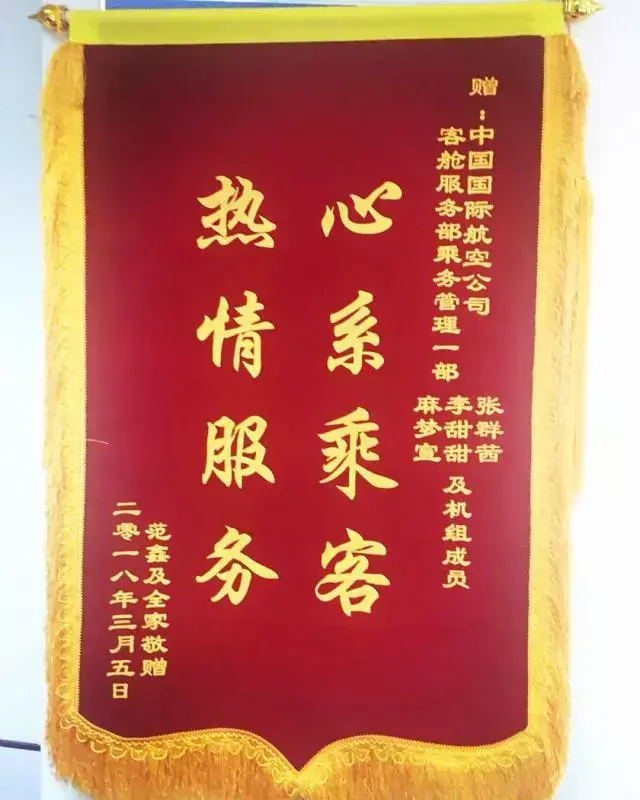 赠：中国国际航空公司
客舱服务部乘务管理一部
张群茜
李甜甜
麻梦宣
及机组成员
心系乘客
热情服务
范鑫及全家敬赠
二零一八年三月五日